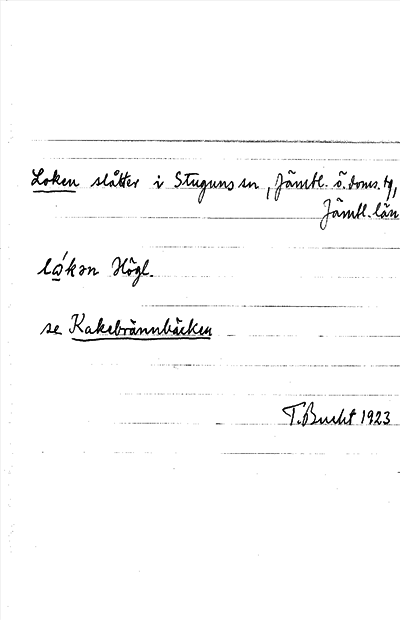 Loken slåtter i Stuguns sn, Jämtl. ö. doms. tg,
Jämtl. län
Högl.
se Kakebrännbäcken
T. Bucht 1923